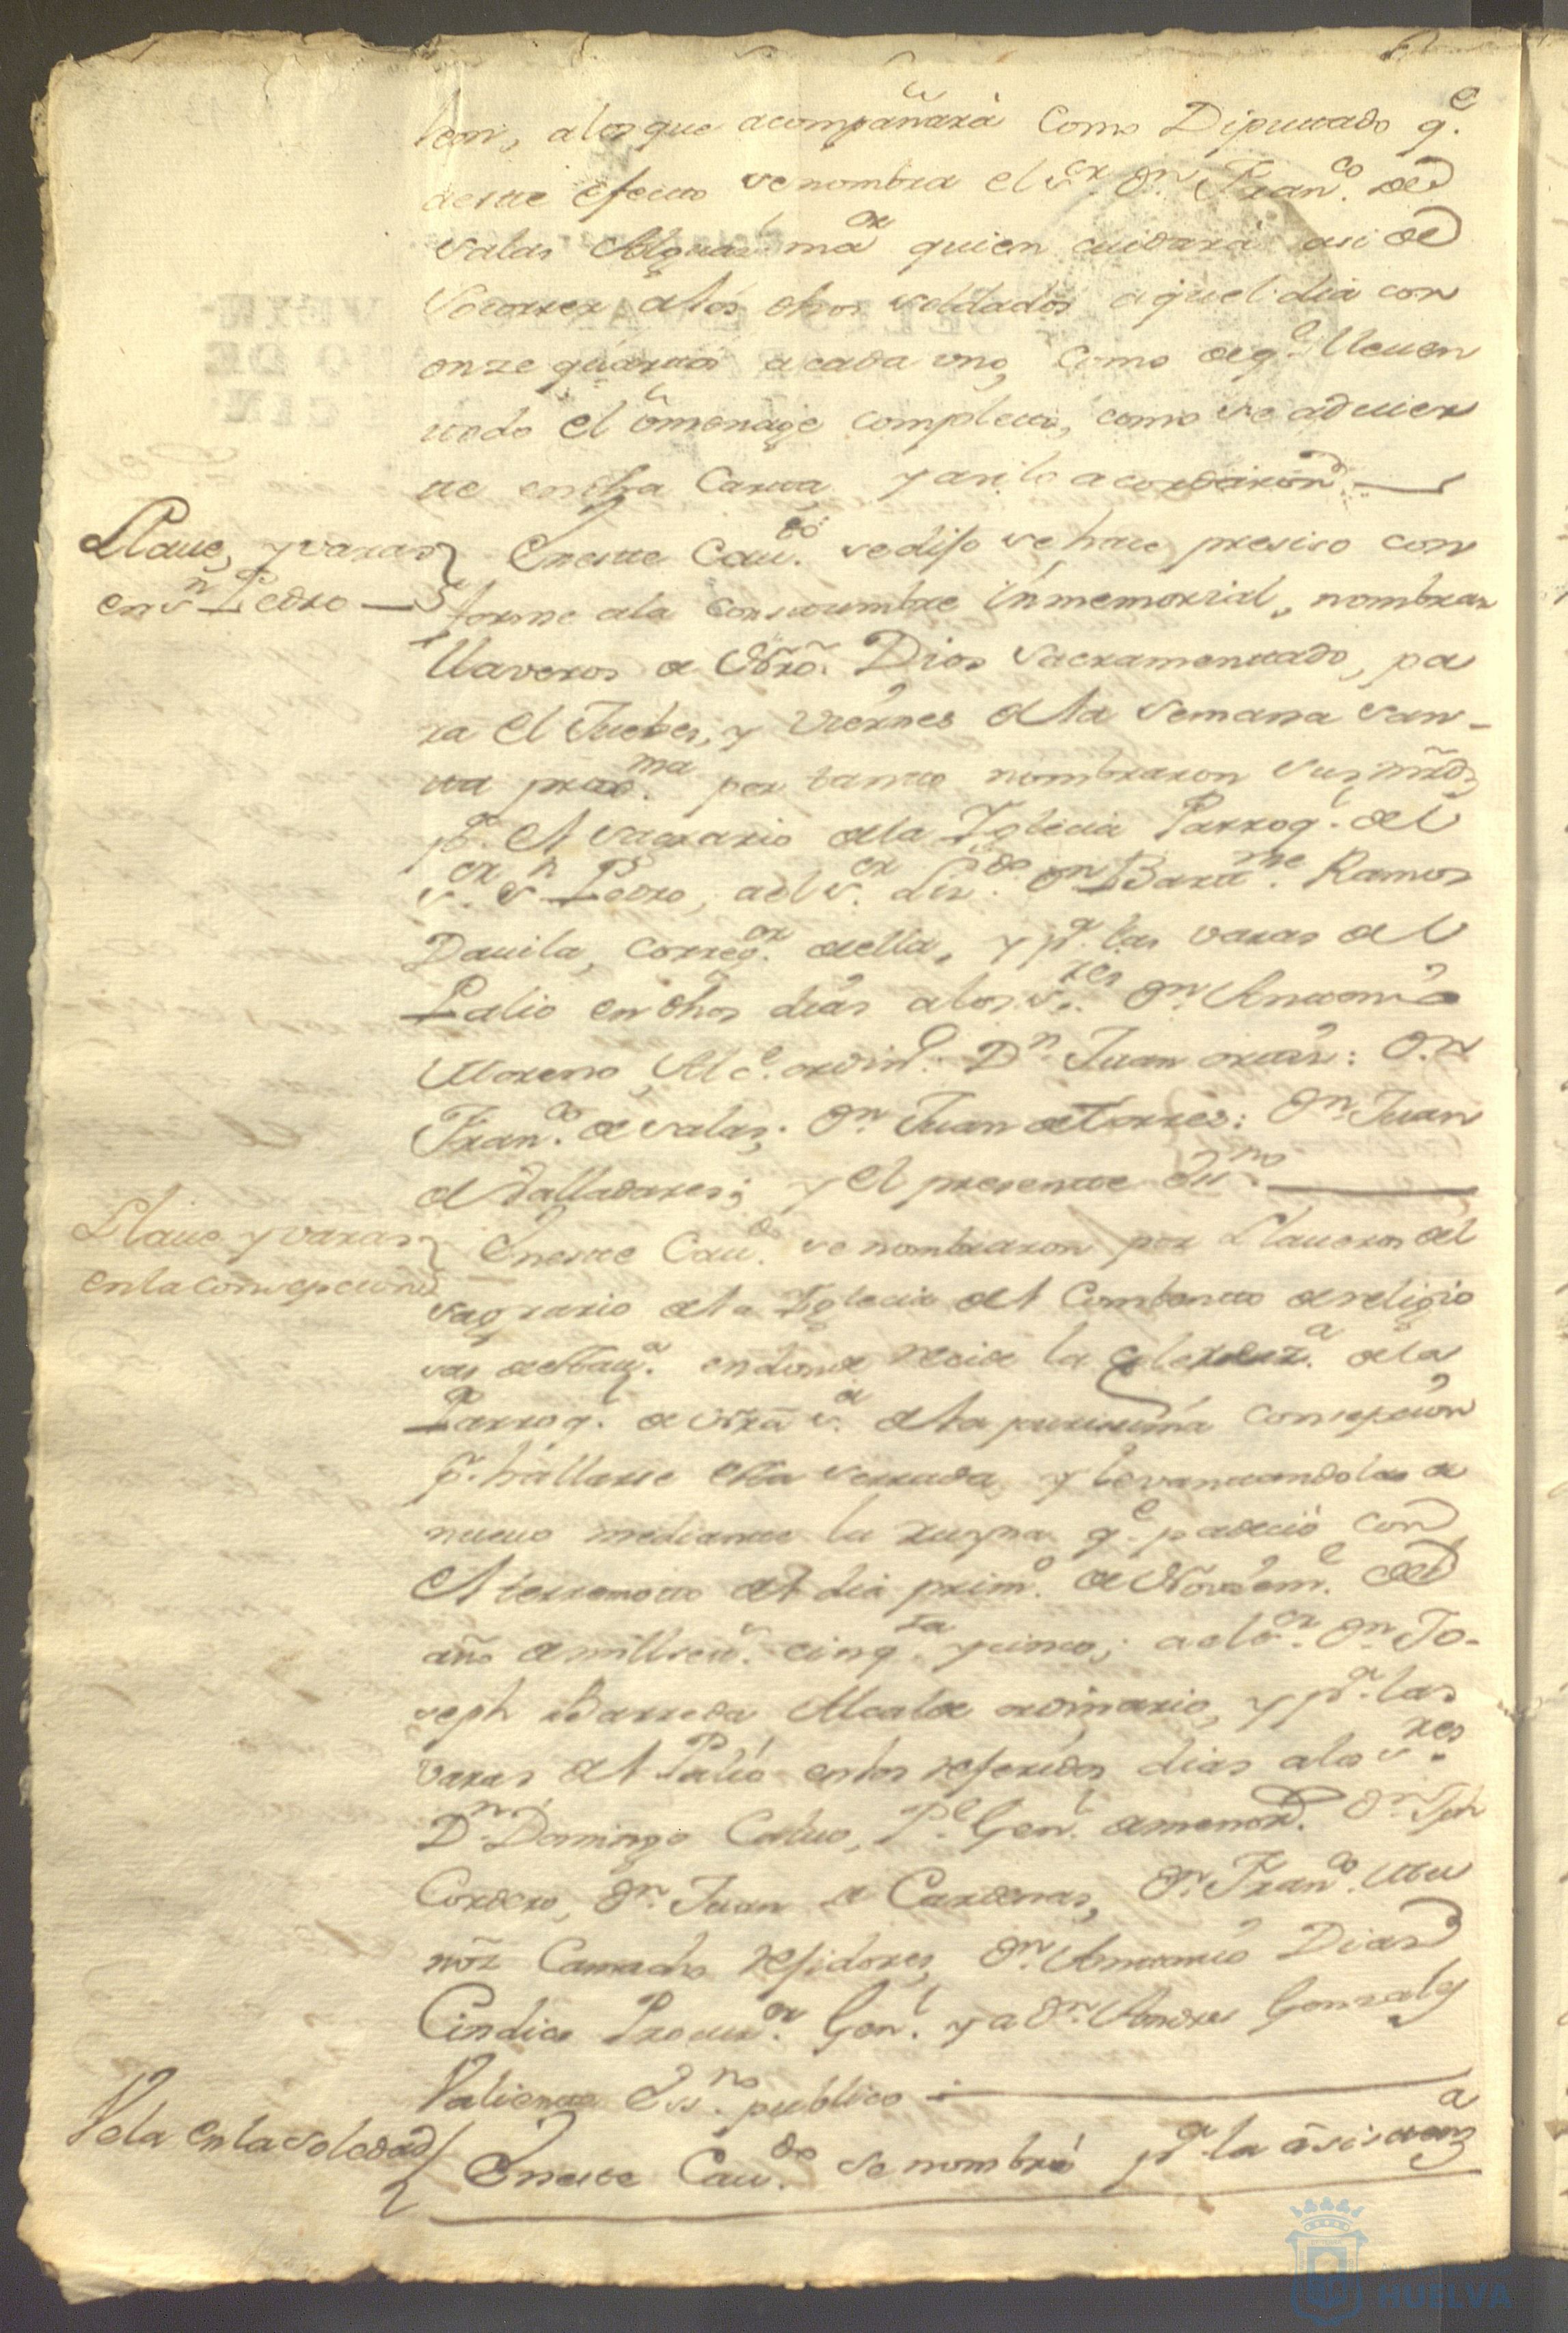 leon, alos que acompañará como Diputado q.e
deste efecto se nombra el s.or D.n Fran.co de
Salas Alguas.l ma.or quien cuidará asi de
socorrer a los dhos soldados aquel dia con
onze quartos a cada uno, como de q.e lleuen
todo el omenage completo, como se aduier
te en dha Carta, y asi lo acordaron
Llaue, y varas
en s.n Pedro
En este Cau.do se dijo se hace presiso con
forme ala constumbre inmemorial, nombrar
llaveros a Nrõ. Dios Sacramentado, pa
ra el Juebes, y Viernes de la Semana San-
ta prox.ma por tanto nombraron sus mrds
p.a el sagrario de la Iglecia Parroq.l del
s.or s.n Pedro, a el s.or Liz.do D.n Bartt.me Ramos
Dauila, Correg.or de ella, y p.a las varas del
Palio en dhos dias a los s.res D.n Antonio
Moreno, Alc.e ordin.o: D.n Juan ortiz: D.n
Fran.co de Salas: D.n Juan de Torres: D.n Juan
de Valladares; y el presente Ess.no
Llaue y varas
en la Consepcion
En este Cau.do se nombraron por Llaueros del
sagrario de la Iglecia del Combento de religio
sas desta v.a en donde recide la
Parroq.l de Nrã s.a de la purissima Consepcion
p.r hallarse esta serrada, y levantandola de
nueuo mediante la ruyna q.e padeció con
el terremoto del dia prim.o de Noviem.e del
año de mill set.s cinq.ta y cinco; a el s.or D.n Jo-
seph Barreda Alcalde ordinario, y p.a las
varas del Palio en los referidos dias a los s.res
D.n Domingo P.e Gen.l de menor.s D.n Jph
Cordero, D.n Juan de Cardenas, D.n Fran.co Mu
ñoz Camacho Rejidores, D.n Antonio Dias
Cindico Procur.or Gen.l y a D.n Andres Gonzales
Valiente Ess.no publico
Vela en la soledad
En este Cau.do se nombró p.a la asistenz.a
HUELVA